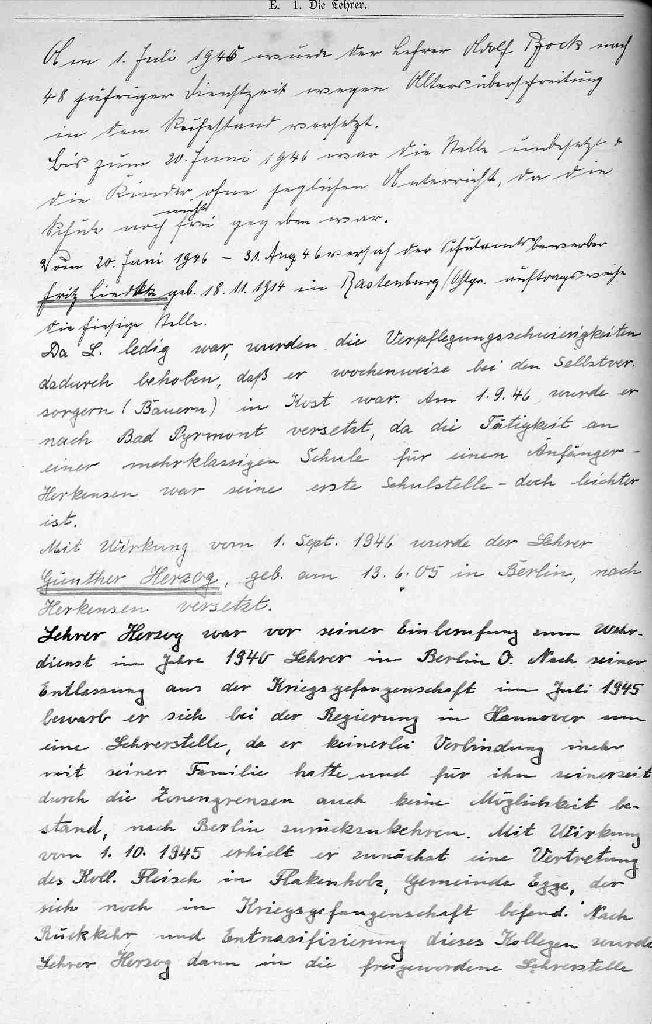 E. 1. Die Lehrer.
Am 1. Juli 1945 wurde der Lehrer Adolf nach
48 jähriger Dienstzeit wegen Altersüberschreitung
in den Ruhestand versetzt.
Bis zum 20. Juni 1946 war die Stelle unbesetzt &
die Kinder ohne jeglichen Unterricht, da die
Schule noch nicht frei gegeben war.
Vom 20. Juni 1946 – 31. Aug 46 versah der Schulamtsbewerber
Fritz geb. 18. 11. 1914 in Rastenburg/Ostpr. auftragsweise
die hiesige Stelle.
Da L. ledig war, wurden die Verpflegungsschwierigkeiten
dadurch behoben, daß er wochenweise bei den Selbstver
sorgern (Bauern) in Kost war. Am 1.9.46 wurde er
nach Bad Pyrmont versetzt, da die Tätigkeit an
einer mehrklassigen Schule für einen Anfänger –
Herkensen war seine erste Schulstelle – doch leichter
ist.
Mit Wirkung vom 1. Sept. 1946 wurde der Lehrer
Günther Herzog, geb. am 13. 6. 05 in Berlin, nach
Herkensen versetzt.
Lehrer Herzog war vor seiner Einberufung zum Wehr-
dienst im Jahre 1940 Lehrer in Berlin O. Nach seiner
Entlassung aus der Kriegsgefangenschaft im Juli 1945
bewarb er sich bei der Regierung in Hannover um
eine Lehrerstelle, da er keinerlei Verbindung mehr
mit seiner Familie hatte und für ihn seinerseit
durch die Zonengrenzen auch keine Möglichkeit be-
stand, nach Berlin zurückzukehren. Mit Wirkung
vom 1. 10. 1945 erhielt er zunächst eine Vertretung
des Koll. Fleisch in Flakenholz, Gemeinde Egge, der
sich noch in Kriegsgefangenschaft befand. Nach
Rückkehr und Entnazifizierung dieses Kollegen wurde
Lehrer Herzog dann in die freigewordene Lehrerstelle